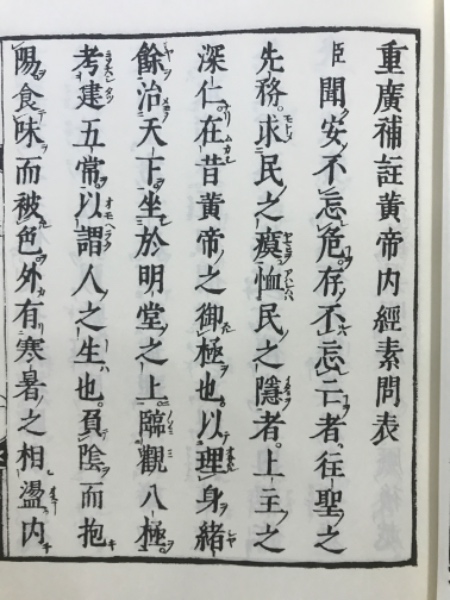 重廣補註黄帝内經素問表
臣聞安不忘危存不忘亡者往聖之
先務求民之瘼恤民之隱者上主之
深仁在昔黄帝之御極也以理身緒
餘治天下坐於明堂之上臨觀八極
考建五常以謂人之生也負陰而抱
陽食味而被色外有寒暑之相盪内